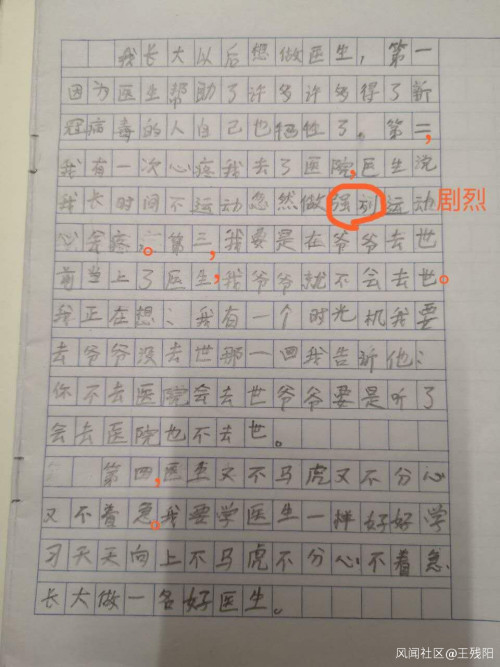 我长大以后想做医生，第一
因为医生帮助了许多许多得了新
冠病毒的人自己也牺牲了。第二，
我有一次心疼我去了医院，医生说
我长时间不运动忽然做强烈运动 剧烈
心会疼。第三，我要是在爷爷去世
前当上了医生，我爷爷就不会去世。
我正在想：我有一个时光机我要
去爷爷没去世那一回我告诉他：
你不去医院会去世爷爷要是听了
会去医院也不去世。
第四，医生又不马虎又不分心
又不着急。我要学医生一样好好学
习天天向上不马虎不分心不着急
长大做一名好医生。
风闻社区@王残阳